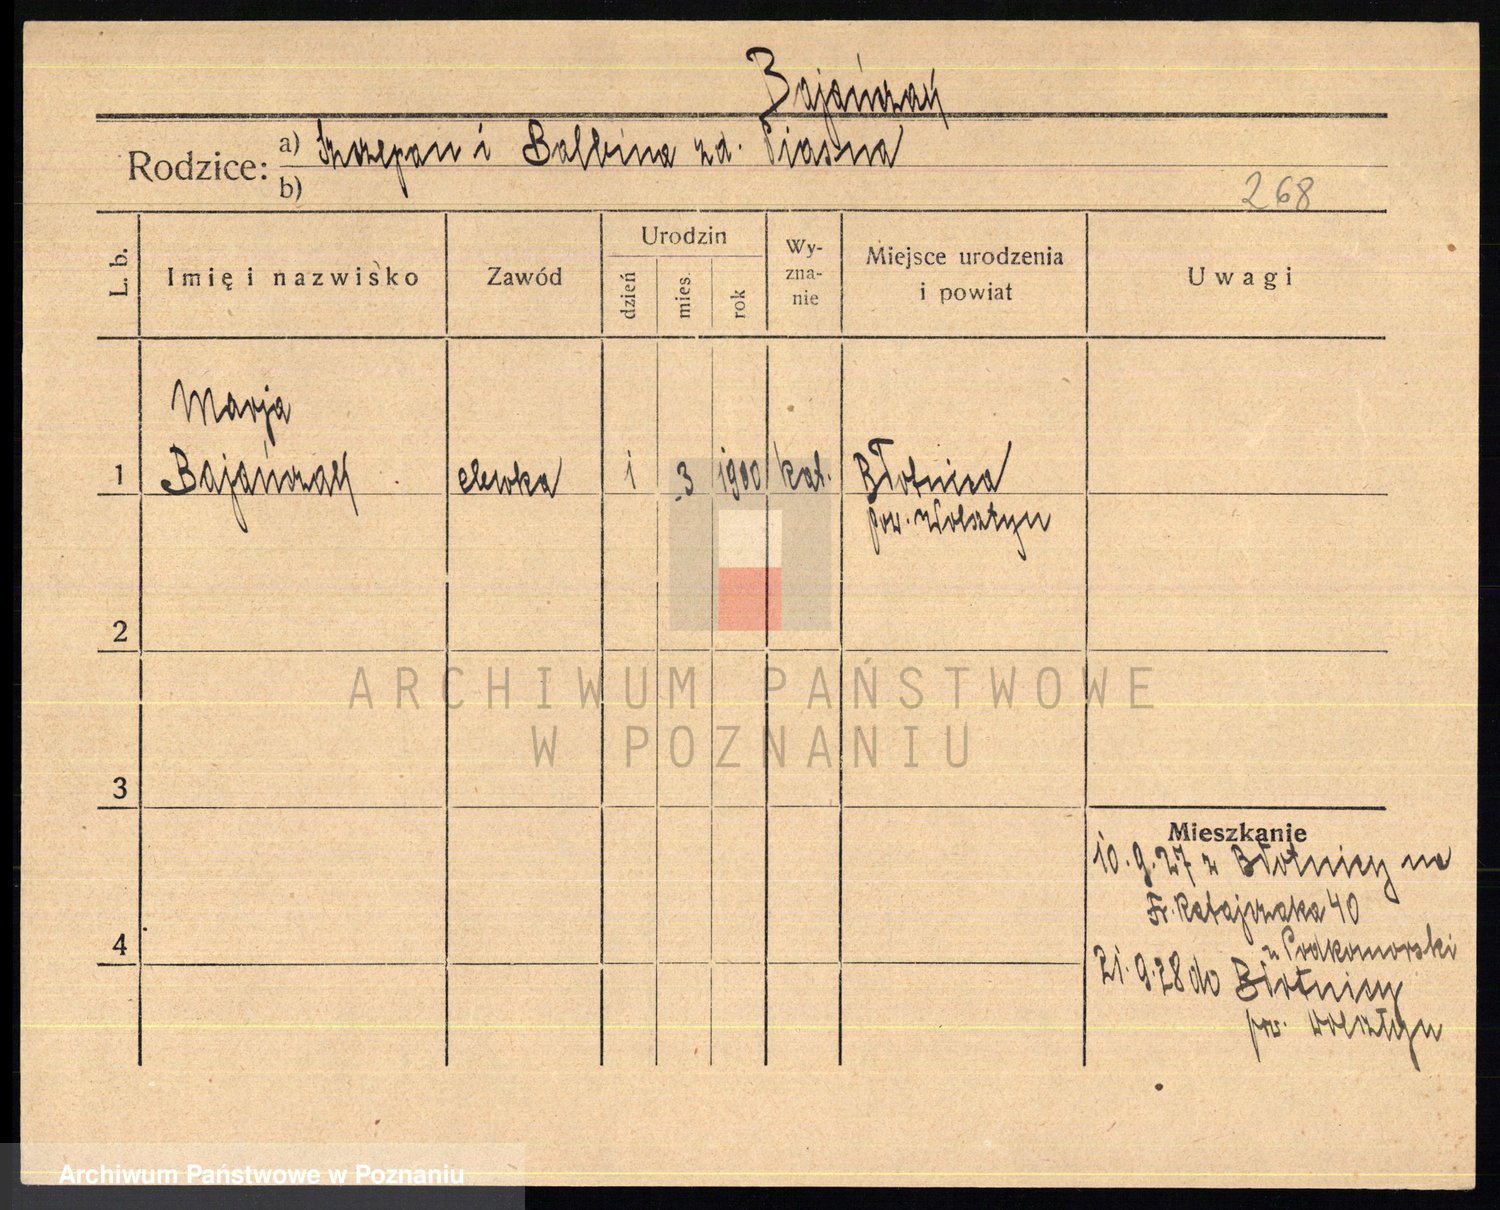 Bajańczak
Rodzice: a) Szczepan i Balbina zd. Piasna
b)
268
L. b.
Imię i nazwisko
Zawód
Urodzin
dzień
mies.
rok
Wy-
zna-
nie
Miejsce urodzenia
i powiat
Uwagi
Marja
1 Bajańczak elewka 1 3 1900 kat. Błotnica
pow. Wolsztyn
2
3
4
Mieszkanie
10.9.27 z Błotnicy na
Fr. Ratajczaka 40
u Podkomorski
21.9.28 do Błotnicy
pow. Wolsztyn
ARCHIWUM PAŃSTWOWE
W POZNANIU
Archiwum Państwowe w Poznaniu